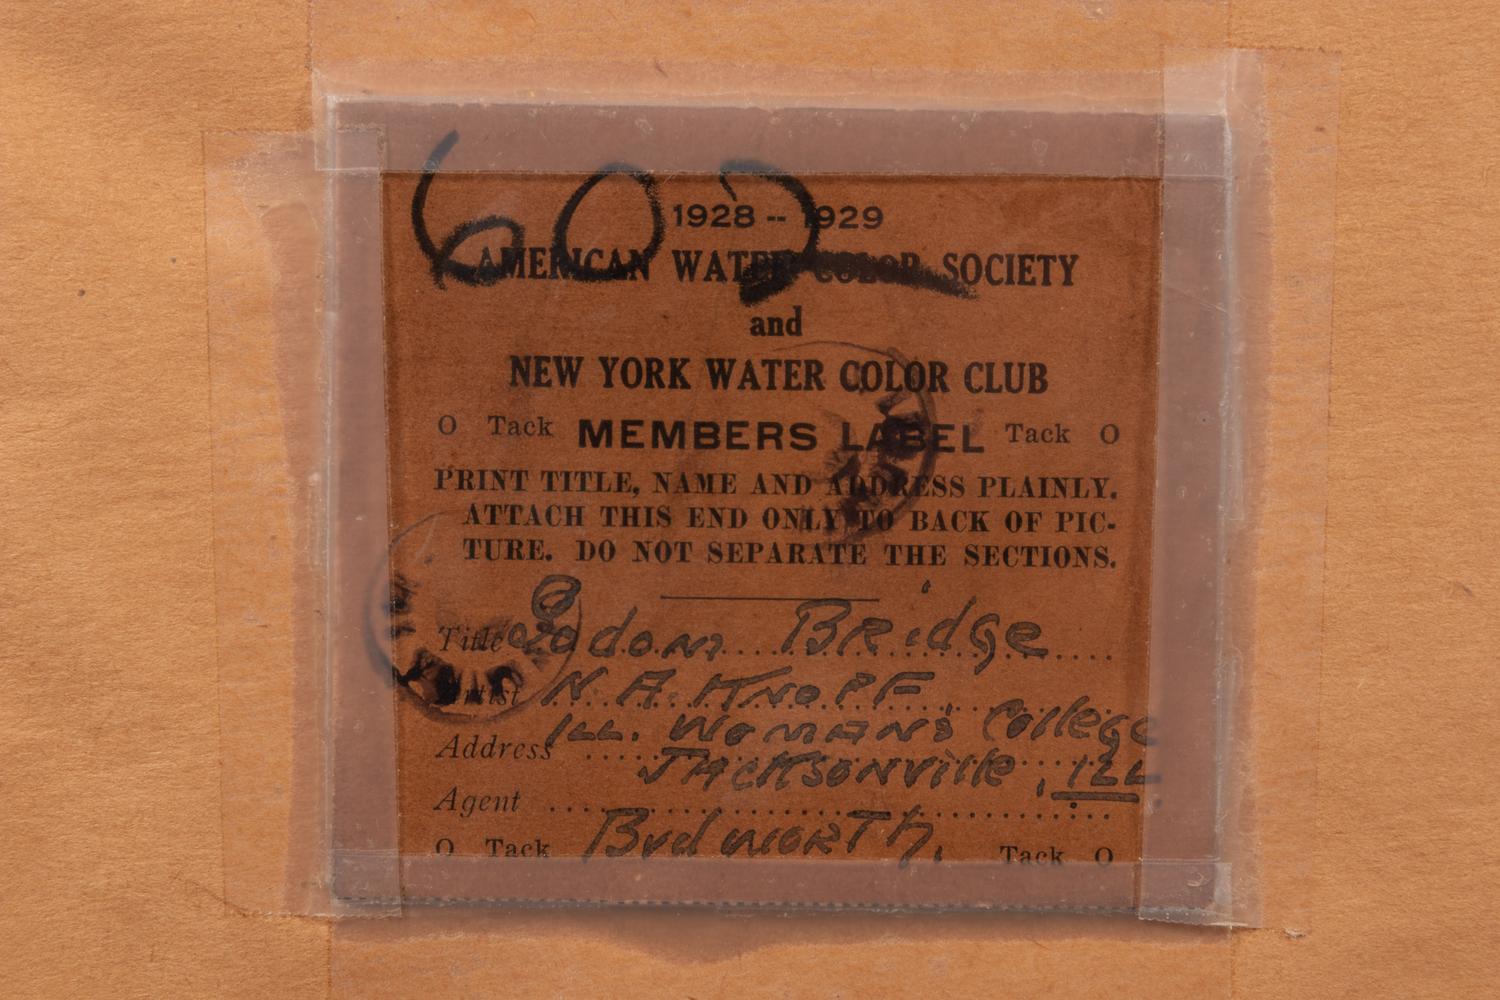 602
1928 -- 1929
AMERICAN WATER COLOR SOCIETY
and
NEW YORK WATER COLOR CLUB
O Tack MEMBERS LABEL Tack O
PRINT TITLE, NAME AND ADDRESS PLAINLY.
ATTACH THIS END ONLY TO BACK OF PIC-
TURE. DO NOT SEPARATE THE SECTIONS.
Title Bridge
Artist N. A. KNOPF
Address ILL. WOMANS College
JACKSONville, ILL
Agent
BudwORTh.
O Tack Tack O